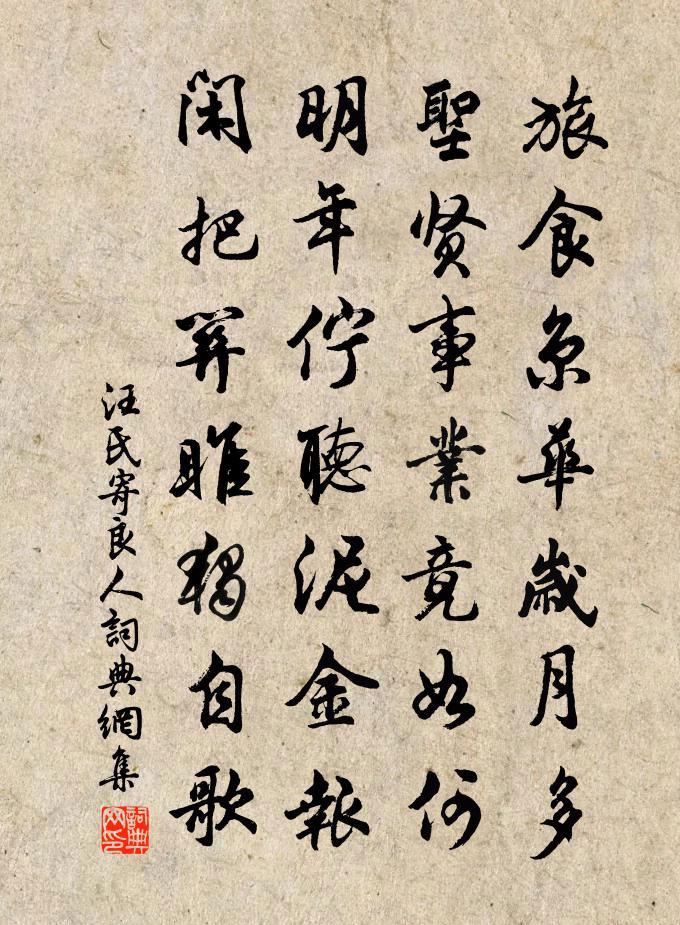 旅食京華歲月多
聖賢事業竟如何
明年佇聽泥金報
閑把關雎獨自歌
汪氏寄良人詞典網集
詞典網印